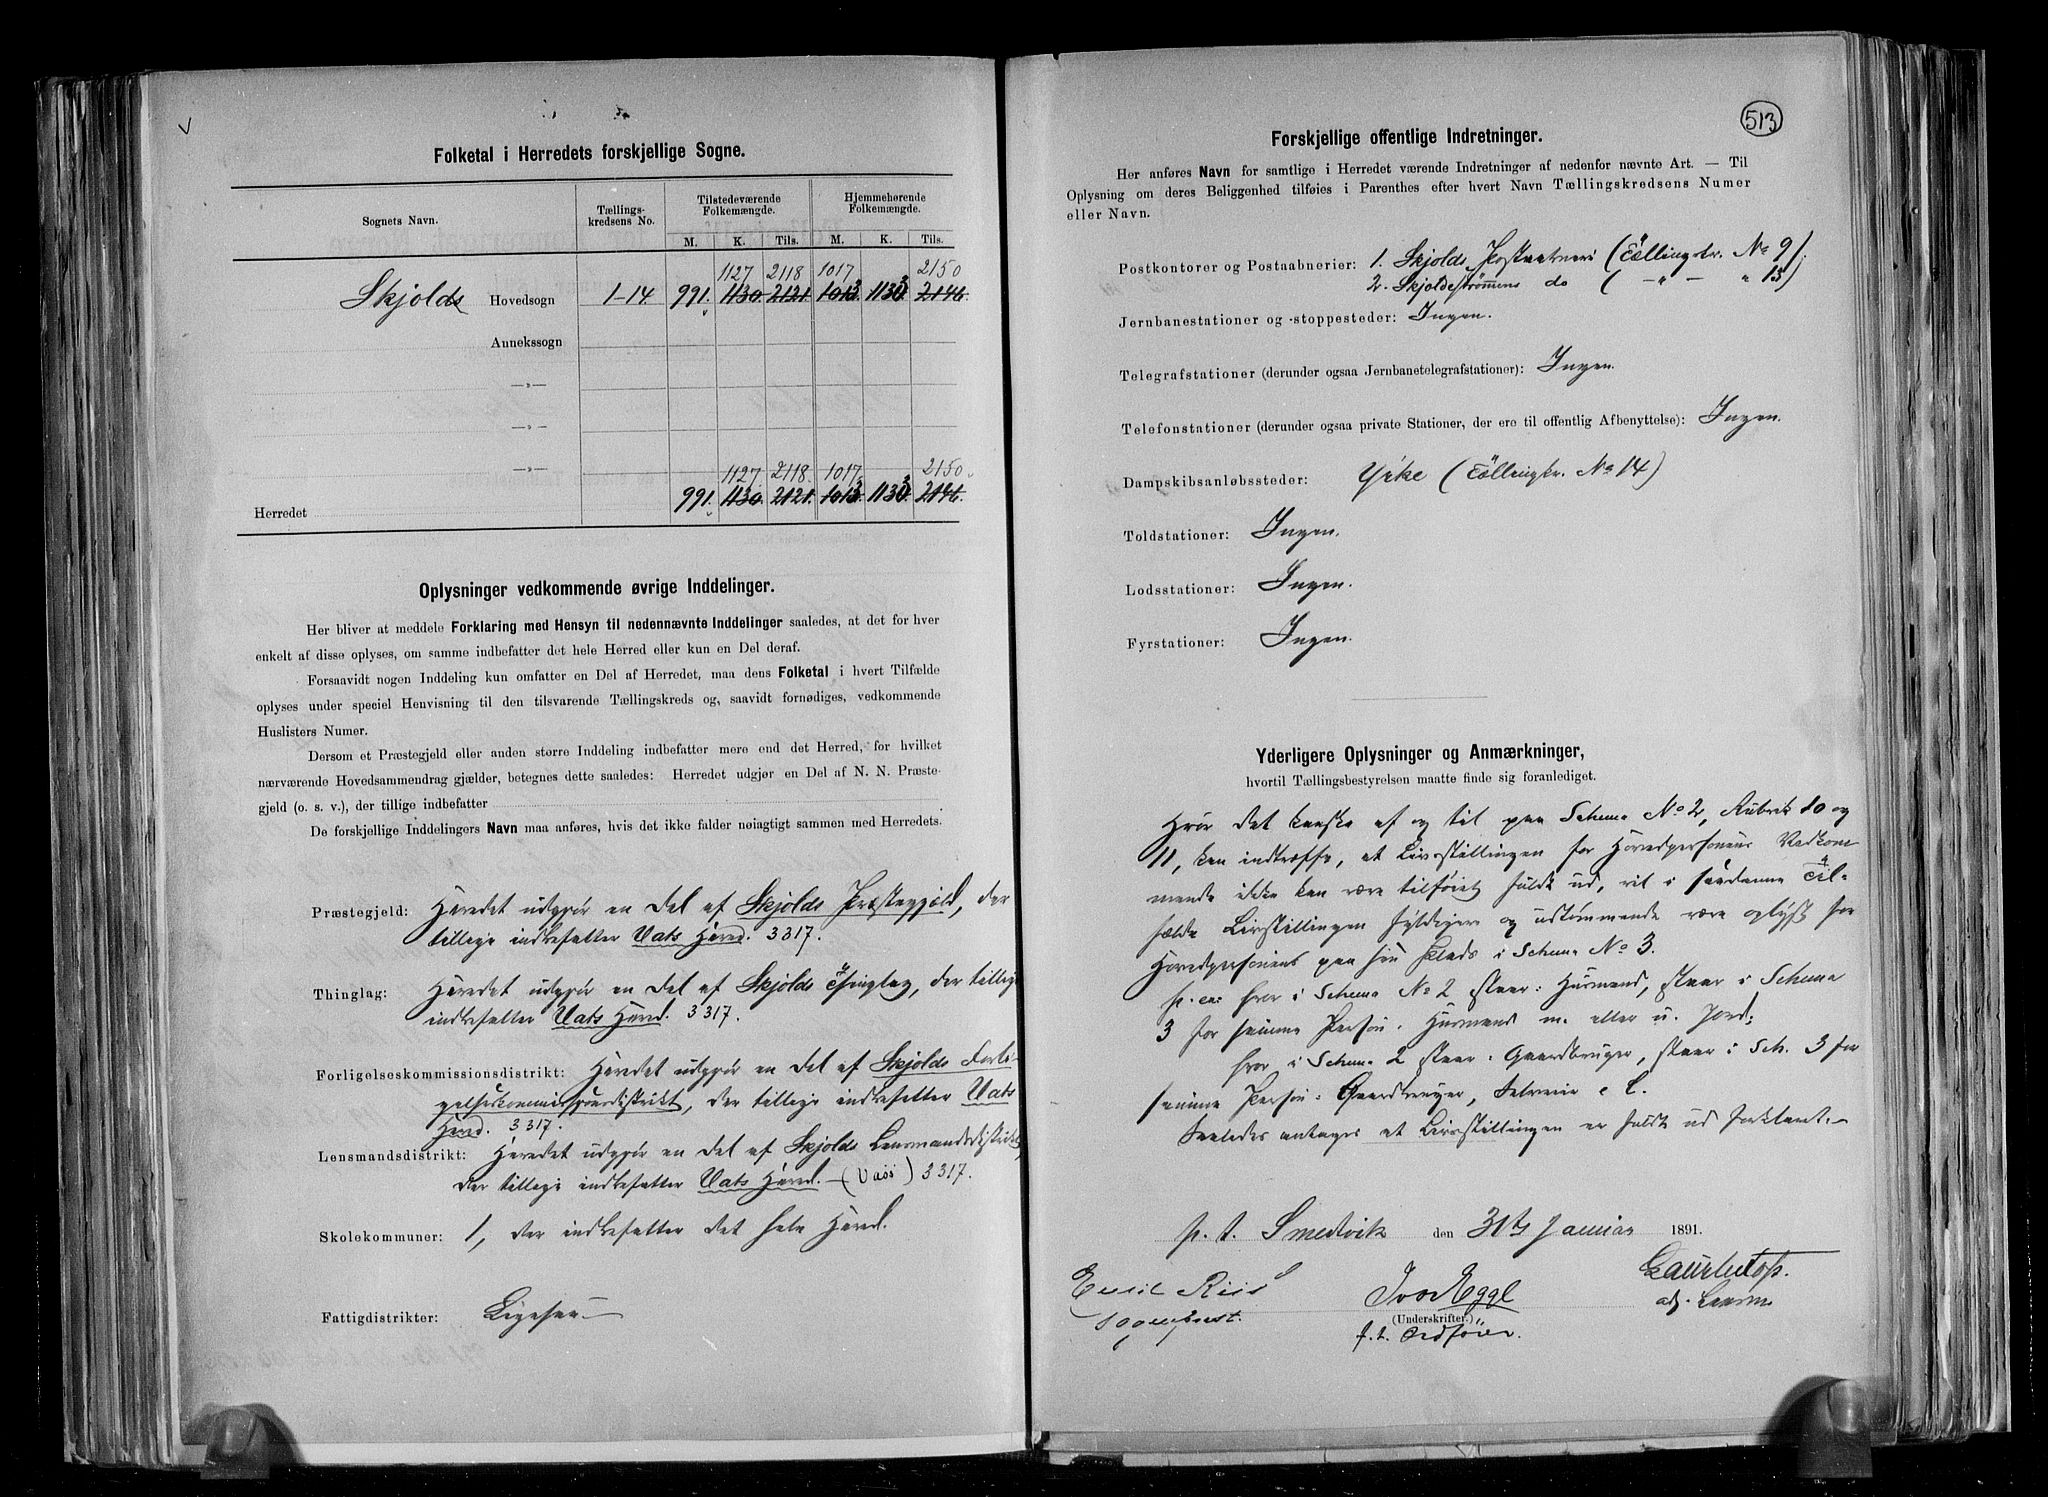 Folketal i Herredets forskjellige Sogne.
Sognets Navn.
Tællings-
kredsens No.
Tilstedeværende
Folkemængde.
Hjemmehørende
Folkemængde.
M. K. Tils. M. K. Tils.
1127 2118 1017 2150
Skjolds Hovedsogn 1-14. 991. 1130. 2121. 1013 1133 2146.
Annekssogn
—»—
—»—
—»—
1127. 2118. 1017. 2150
Herredet 991. 1130. 2121. 1013 1133 2146.
Oplysninger vedkommende øvrige Inddelinger.
Her bliver at meddele Forklaring med Hensyn til nedennævnte Inddelinger saaledes, at det for hver
enkelt af disse oplyses, om samme indbefatter det hele Herred eller kun en Del deraf.
Forsaavidt nogen Inddeling kun omfatter en Del af Herredet, maa dens Folketal i hvert Tilfælde
oplyses under speciel Henvisning til den tilsvarende Tællingskreds og, saavidt fornødiges, vedkommende
Huslisters Numer.
Dersom et Præstegjeld eller anden større Inddeling indbefatter mere end det Herred, for hvilket
nærværende Hovedsammendrag gjælder, betegnes dette saaledes: Herredet udgjør en Del af N. N. Præste-
gjeld (o. s. v.), der tillige indbefatter
De forskjellige Inddelingers Navn maa anføres, hvis det ikke falder nøiagtigt sammen med Herredets.
Præstegjeld: Herredet udgjør en Del af Skjolds Præstegjeld, der
tillige indbefatter Vats Herred. 3317.
Thinglag: Herredet udgjør en Del af Skjolds Thinglag, der tillige
indbefatter Vats Herred. 3317.
Forligelseskommissionsdistrikt: Herredet udgjør en Del af Skjolds Forli-
gelseskommissionsdistrikt, der tillige indbefatter Vats
Herred. 3317.
Lensmandsdistrikt: Herredet udgjør en Del af Skjolds Lensmandsdistrikt,
der tillige indbefatter Vats Herred. — 3317.
Skolekommuner: 1, der indbefatter det hele Herred.
Fattigdistrikter: Ligesaa—
513
Forskjellige offentlige Indretninger.
Her anføres Navn for samtlige i Herredet værende Indretninger af nedenfor nævnte Art. — Til
Oplysning om deres Beliggenhed tilføies i Parenthes efter hvert Navn Tællingskredsens Numer
eller Navn.
Postkontorer og Postaabnerier: 1. Skjolds Postaabneri (Tællingskr. No 9).
2. Skjoldestrømmens do ( —"— " 13)
Jernbanestationer og -stoppesteder: Ingen.
Telegrafstationer (derunder ogsaa Jernbanetelegrafstationer): Ingen.
Telefonstationer (derunder ogsaa private Stationer, der ere til offentlig Afbenyttelse): Ingen.
Dampskibsanløbssteder: Yrke (Tællingkr. No 14)
Toldstationer: Ingen.
Lodsstationer: Ingen.
Fyrstationer: Ingen.
Yderligere Oplysninger og Anmærkninger,
hvortil Tællingsbestyrelsen maatte finde sig foranlediget.
Hvor det kanske af og til paa Schema No 2, Rubrik 10 og
11, kan indtræffe, at Livsstillingen for Hovedpersonens Vedkom
mende ikke kan være tilføiet fuldt ud, vil i saadanne Til-
fælde Livsstillingen fyldigere og udtømmende være oplyst for
Hovedpersonens paa sin Plads i Schema No 3.
hvor i Schema No 2 staar: Husmand, staar i Schema
3 for samme Person: Husmand m. eller u. Jord;
hvor i Schema 2 staar: Gaardbruger, staar i Sch. 3 for
samme Person: Gaardbruger, Selveier
Saaledes antages at Livsstillingen er fuldt ud forklaret.—
p. t. Smedvik den 31te Januar 1891.
Emil Riis
Sogneprest.
Ivar Eggl
(Underskrifter.)
f. t. Ordfører.